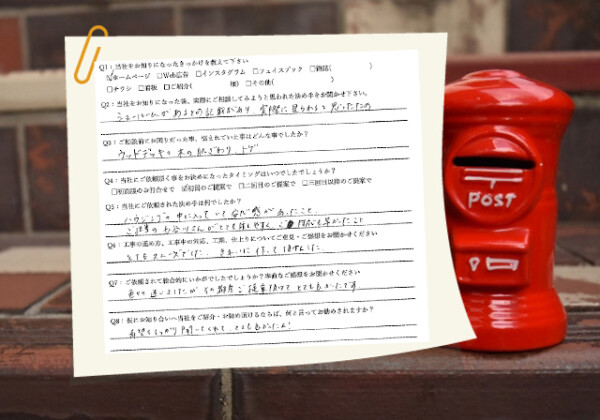 Q1：当社をお知りになったきっかけを教えて下さい
☑ホームページ □Web広告 □インスタグラム □フェイスブック □雑誌( )
□チラシ □看板 □ご紹介( 様) □その他( )
Q2：当社をお知りになった後、実際にご相談してみようと思われた決め手をお聞かせ下さい。
ショールームがあるとの記載があり、実際に見られると思ったため
Q3：ご相談前にお困りだった事、悩まれていた事はどんな事でしたか？
ウッドデッキの木の
Q4：当社にご依頼頂く事をお決めになったタイミングはいつでしたでしょうか？
□初回のお打合せで ☑初回のご提案で □二回目のご提案で □三回目以降のご提案で
Q5：当社にご依頼された決め手は何でしたか？
ハウジングの中に入っていて安心感があったこと。
Q6：工事の進め方、工事中の対応、工期、仕上りについてご意見・ご感想をお聞かせください
とてもスムーズで きれいに作って頂けました
Q7：ご依頼されて総合的にいかがでしたでしょうか？率直なご感想をお聞かせください
色々と迷いましたが その都度ご提案頂けて とても良かったです
Q8：仮にお知り合いへ当社をご紹介・お勧め頂けるならば、何と言ってお勧めされますか？
希望をしっかり聞いてくれて、とても良かったよ！
POST